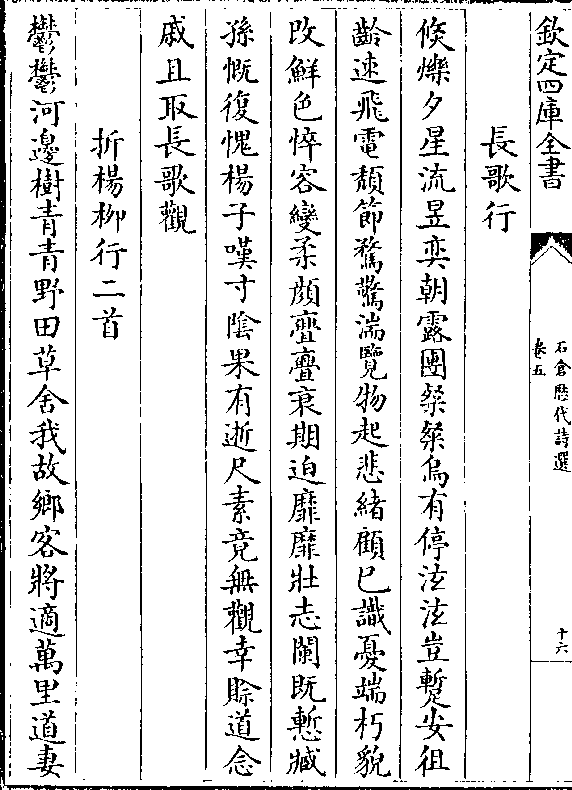 欽定四庫全書
石倉歷代詩選
卷五
十六
長歌行
倏爍夕星流昱奕朝露團粲粲烏有停泫泫豈蹔安徂
齡速飛電頽節騖驚湍覽物起悲緒顧已識憂端朽貌
改鮮色悴容變柔顔亹亹衰期迫靡靡壯志闌既慙臧
孫慨復愧楊子嘆寸陰果有逝尺素竟無觀幸賒道念
戚且取長歌觀
折楊柳行二首
鬱鬱河邊樹青青野田草舍我故鄉客將適萬里道妻